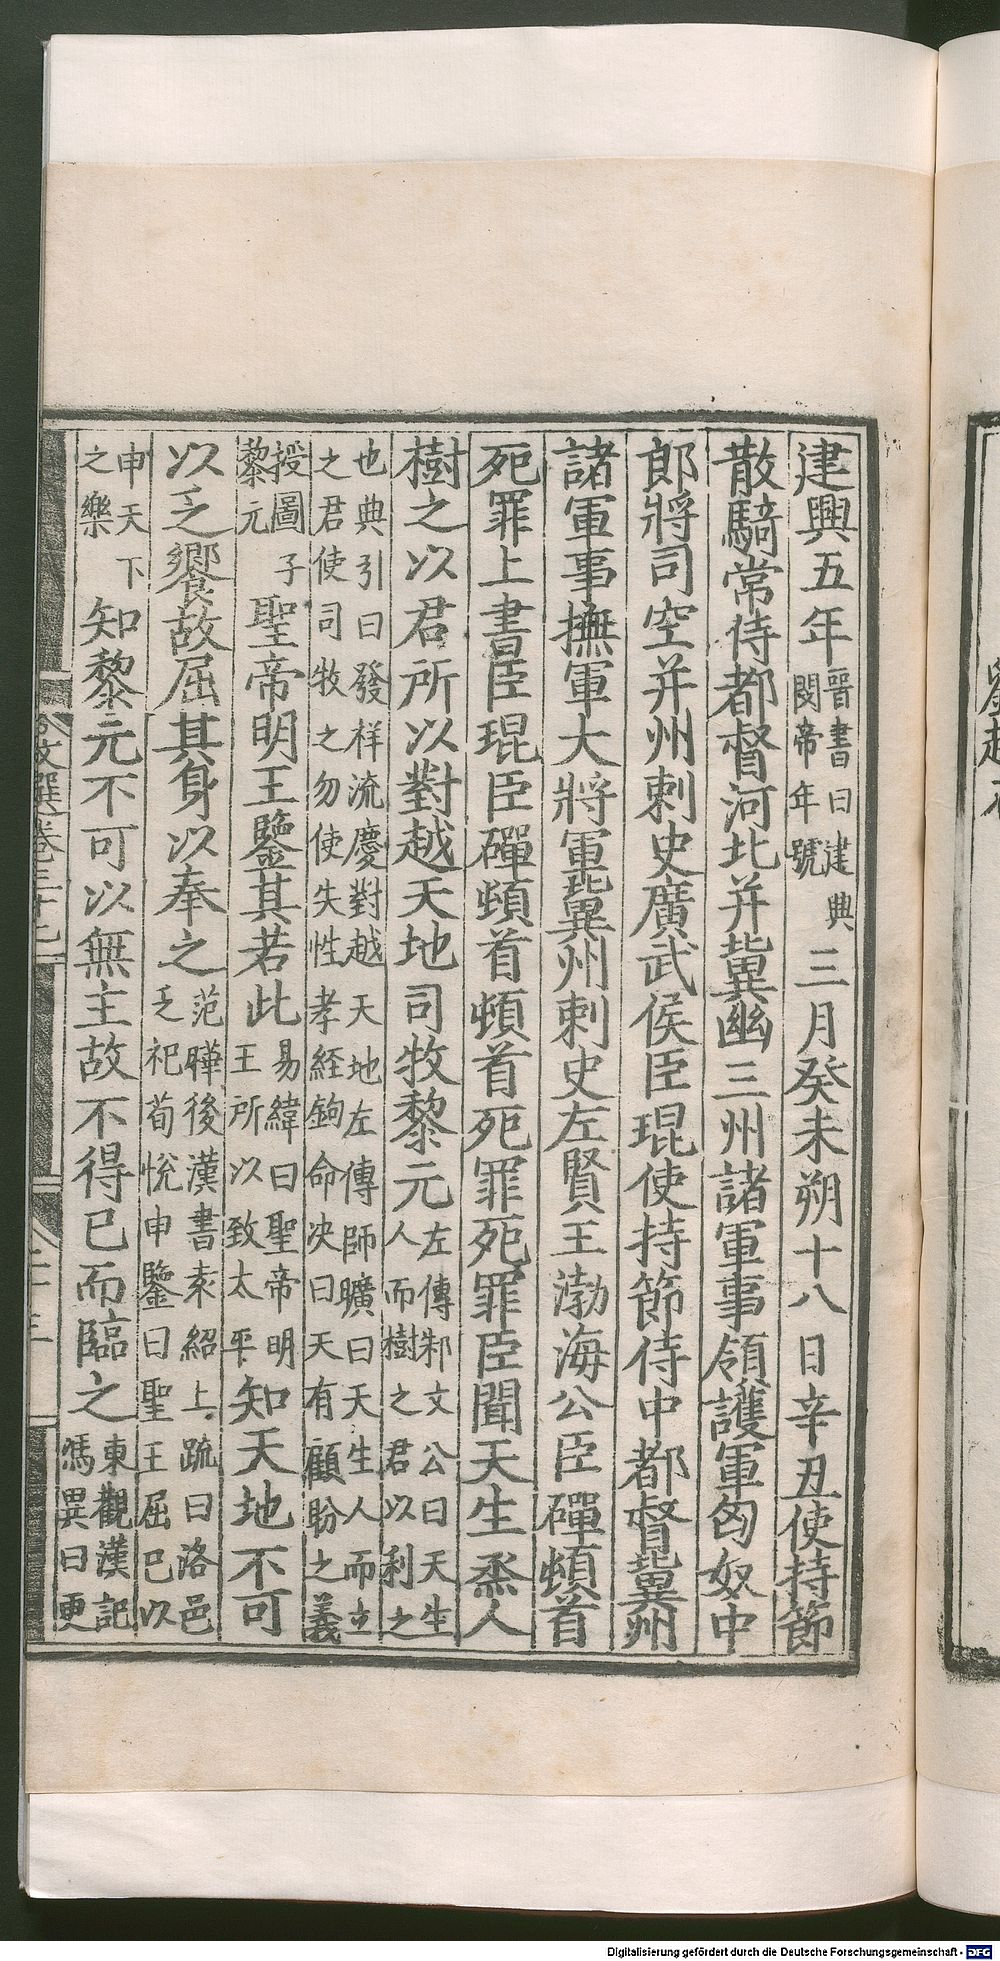 建興五年晉書曰建典閔帝年號三月癸未朔十八日辛丑使持節
散騎常侍都督河北并冀幽三州諸軍事領護軍匈奴中
郎將司空并州刺史廣武侯臣琨使持節侍中都督冀州
諸軍事撫軍大將軍冀州刺史左賢王渤海公臣磾頓首
死罪上書臣琨臣磾頓首頓首死罪死罪臣聞天生烝人
樹之以君所以對越天地司牧黎元左傳邾文公曰天生人而樹之君以利之
也典引曰發祥流慶對越天地左傳師曠曰天生人而立之君使司牧之勿使失性孝經鉤命决曰天有顧盼之義
授圖子黎元聖帝明王鑒其若此易緯曰聖帝明王所以致太平知天地不可
以乏饗故屈其身以奉之范曄後漢書袁紹上疏曰洛邑乏祀荀悅申鑒曰聖王屈已以
申天下之樂知黎元不可以無主故不得已而臨之東觀漢記馮異曰更
文選卷三十七
Digitalisierung gefördert durch die Deutsche Forschungsgemeinschaft - DFG